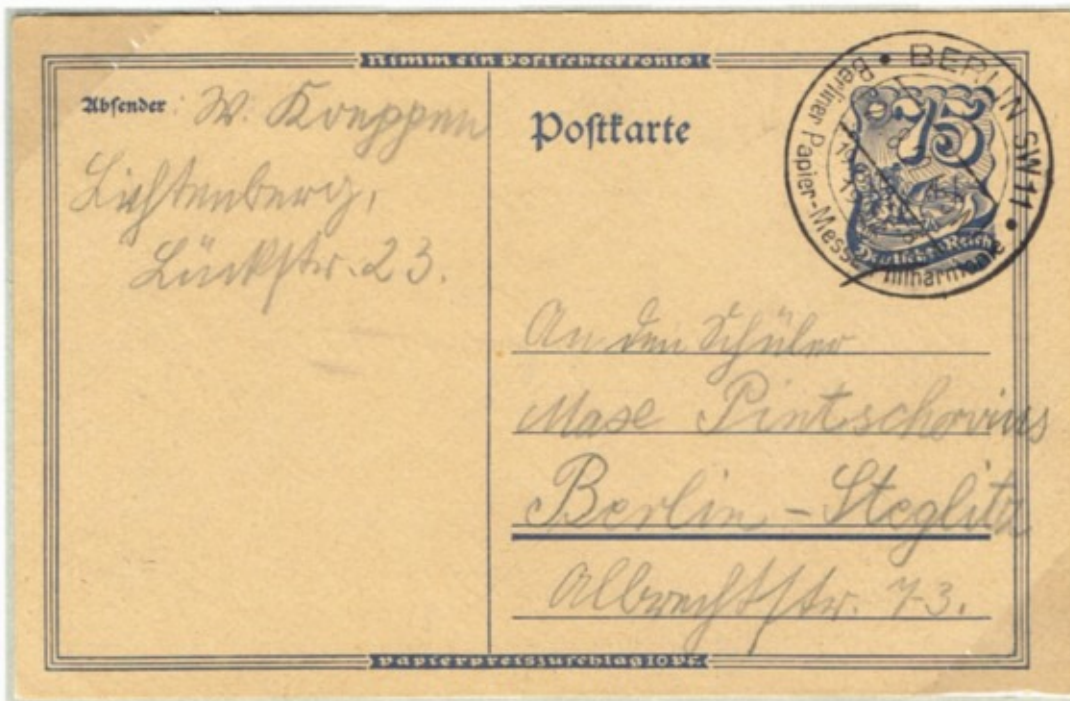 Nimm ein Postscheckkonto!
Absender: W. Koeppen
Lichtenberg,
Lückstr. 23.
Postkarte
BERLIN SW 11
Berliner Papier-Messe Philharmonie
75
Deutsches Reich
An den Schüler
Maxe Pintschovius
Berlin - Steglitz
Albrechtstr. 73.
Papierpreiszuschlag 10 Pf.